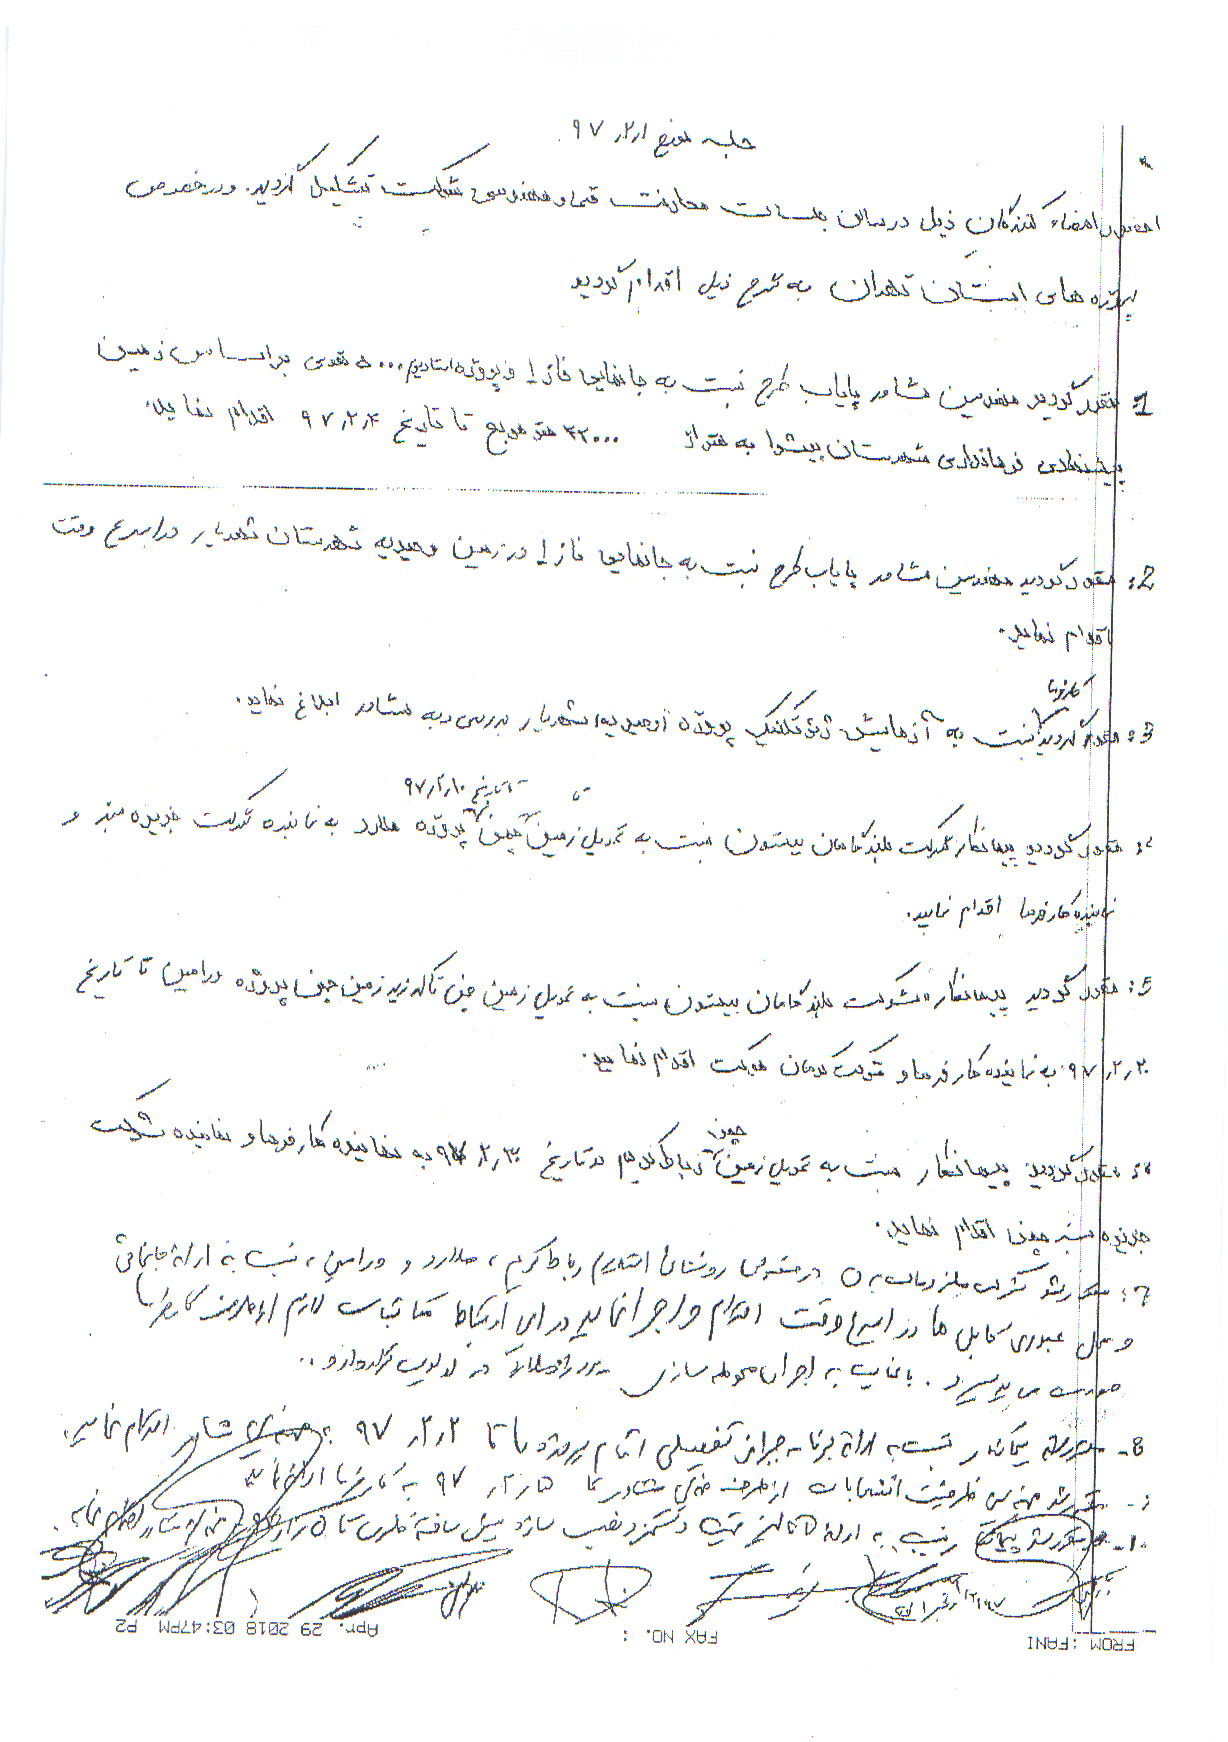 جلسه مورخ ۹۷٫۲٫۱
احضور امضاء کنندگان ذیل در سالن جلسات معاونت فنی و مهندسی شرکت تشکیل گردید. و در خصوص
پروژه های استان تهران به شرح ذیل اقدام گردید
1: مقرر گردید مهندسین مشاور پایاب طرح نسبت به جانمایی فاز ۱ و پروژه استادیوم ۵۰۰۰ نفری براساس زمین
پیشنهادی فرمانداری شهرستان پیشوا به متراژ ۲۲۰۰۰ متر مربع تا تاریخ ۹۷٫۲٫۴ اقدام نماید.
2: مقرر گردید مهندسین مشاور پایاب طرح نسبت به جانمایی فاز ۱ در زمین وحیدیه شهرستان شهریار در اسرع وقت
اقدام نماید.
کارفرما
3: مقرر گردید نسبت به آزمایش ژئوتکنیک پروژه (وحیدیه) شهریار بررسی و به مشاور ابلاغ نماید.
تا تاریخ ۹۷٫۲٫۱۰
۴: مقرر گردید پیمانکار شرکت بلندگامان بیستون نسبت به تحویل زمین چمن پروژه ملارد به نماینده شرکت جزیره سبز و
نماینده کارفرما اقدام نماید.
5: مقرر گردید پیمانکار شرکت بلندگامان بیستون نسبت به تحویل زمین چمن زمین چمن پروژه ورامین تا تاریخ
۹۷٫۲٫۲۰ به نماینده کارفرما و شرکت اقدام نماید.
چمن
۶: مقرر گردید پیمانکار نسبت به تحویل زمین رباط کریم در تاریخ ۹۷٫۲٫۳۰ به نماینده کارفرما و نماینده شرکت
جزیره سبز چمن اقدام نماید.
7: مقرر شد شرکت در خصوص روشنائی استادیوم رباط کریم، ملارد و ورامین، نسبت به ارائه جانمائی
و محل عبوری کابل ها در اسرع وقت اقدام و اجرا نماید در این ارتباط مکاتبات لازم از طرف کارفرما
صورت می پذیرد. با عنایت به اجرای محوطه سازی در اولویت قرار دارد.
8- مقرر شد پیمانکار نسبت به ارائه برنامه جبرانی تفصیلی اتمام پروژه ها تا ۹۷٫۲٫۲ به مهندس مشاور اقدام نماید.
- مقرر شد ظرفیت انشعابات از طرف مهندس مشاور تا ۹۷٫۲٫۵ به کارفرما ارائه نماید
۱۰- مقرر شد پیمانکار نسبت به ارائه
FROM :FANI FAX NO. : Apr. 29 2018 03:47PM P2